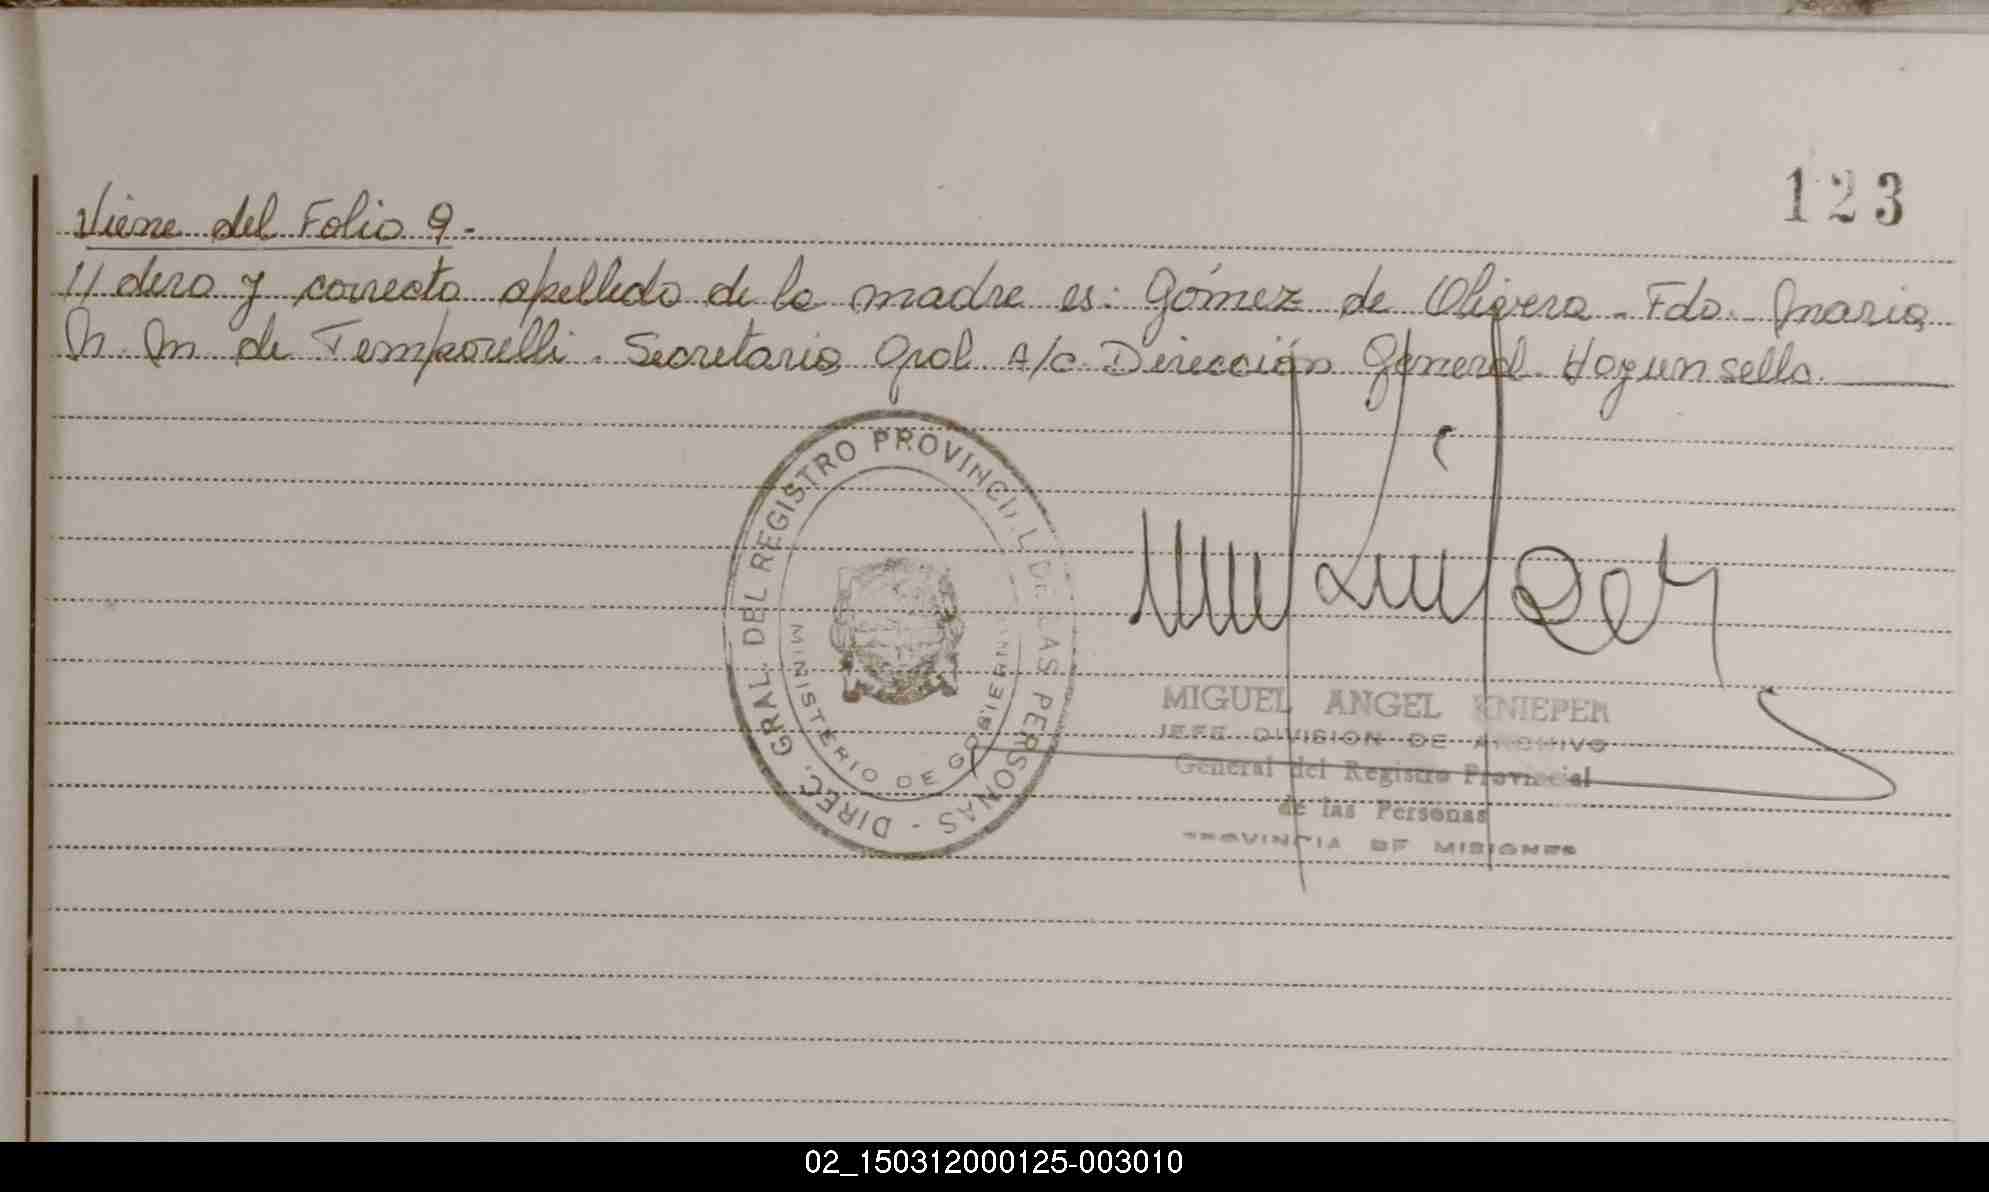 123
Viene del Folio 9.-
// dero y correcto apellido de la madre es: Gómez de Olivera. Fdo. Maria
N. M de Temporelli. Secretaria Gral A/c. Dirección General. Hay un sello.
DIREC. GRAL. DEL REGISTRO PROVINCIAL DE LAS PERSONAS -
MINISTERIO DE GOBIERNO
MIGUEL ANGEL KNIEPER
JEFE DIVISION DE ARCHIVO
General del Registro Provincial
de las Personas
PROVINCIA DE MISIONES
02_150312000125-003010